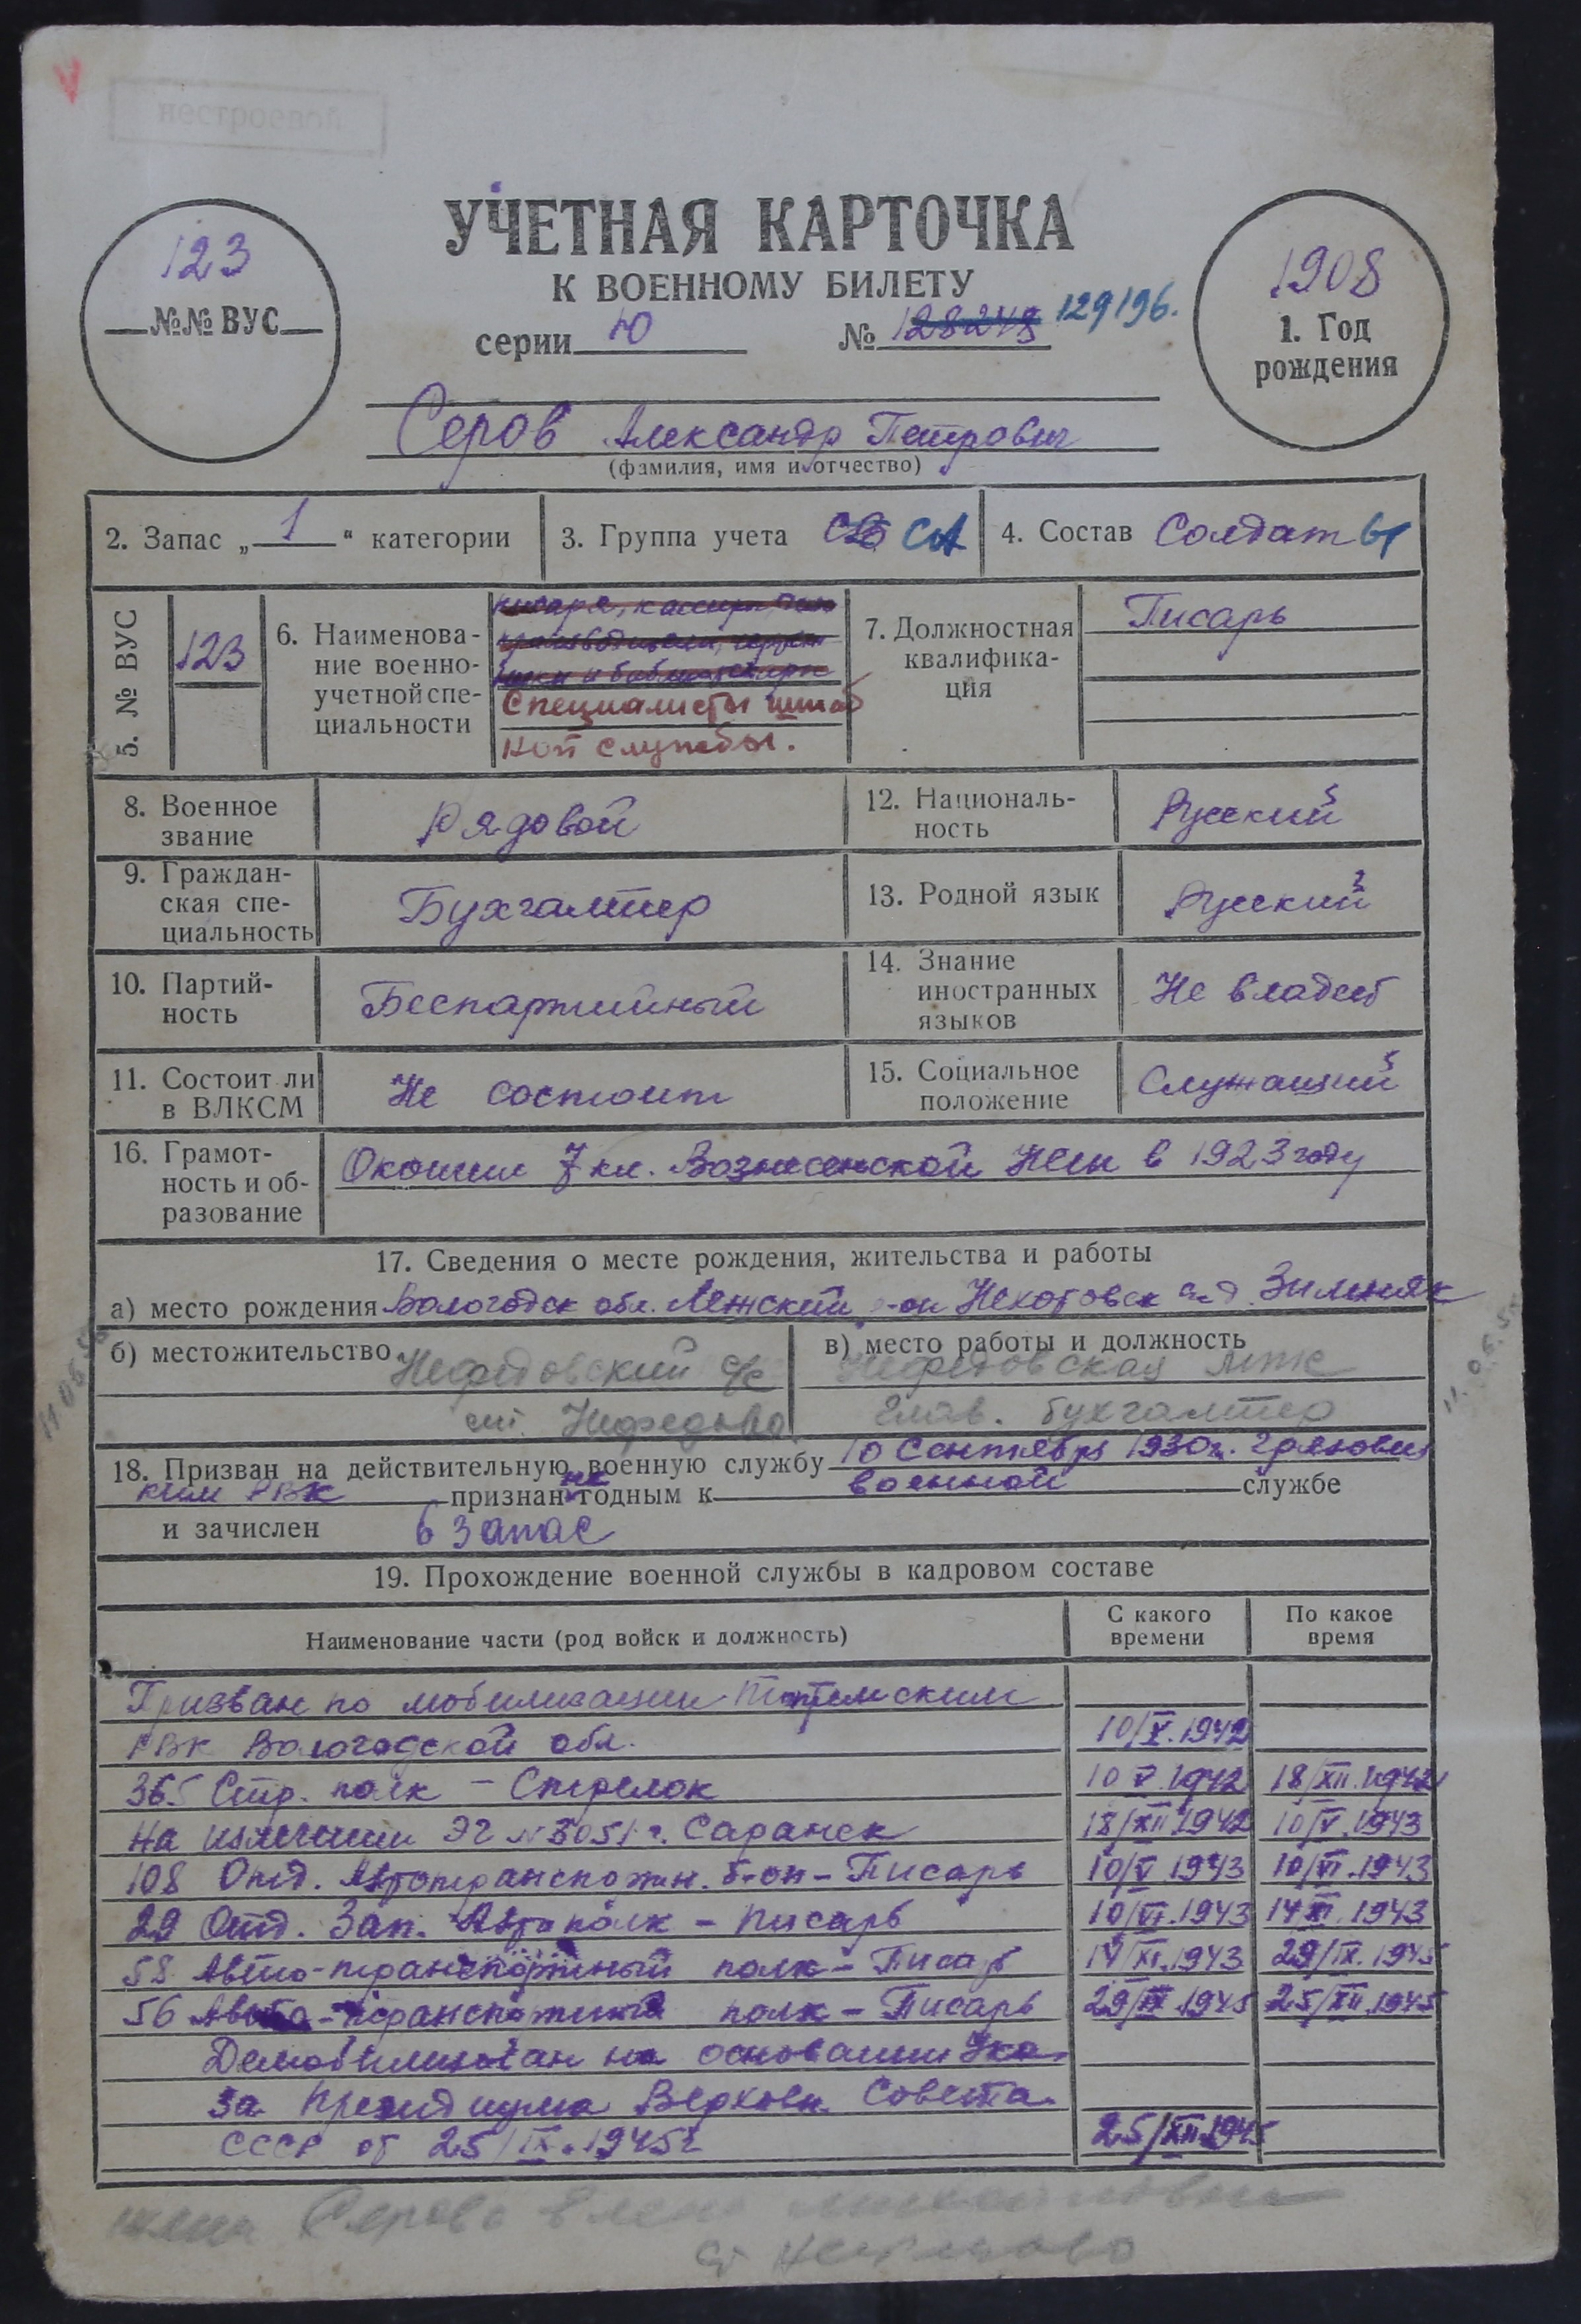 нестроевой
УЧЕТНАЯ КАРТОЧКА
К ВОЕННОМУ БИЛЕТУ
серии Ю № 128248 129196.
123
№№ ВУС
1908
1. Год
рождения
Серов Александр Петрович
(фамилия, имя и отчество)
2. Запас „ 1 “ категории
3. Группа учета СА
4. Состав Солдаты
5. № ВУС
123
6. Наименова-
ние военно-
учетной спе-
циальности
писаря, кассиры, дело
производители,
и библиотекари
Специалисты штаб
ной службы.
7. Должностная
квалифика-
ция
Писарь
8. Военное
звание
Рядовой
12. Националь-
ность
Русский
9. Граждан-
ская спе-
циальность
Бухгалтер
13. Родной язык
Русский
10. Партий-
ность
Беспартийный
14. Знание
иностранных
языков
Не владеет
11. Состоит ли
в ВЛКСМ
Не состоит
15. Социальное
положение
Служащий
16. Грамот-
ность и об-
разование
Окончил 7 кл. Вознесенской в 1923 году
17. Сведения о месте рождения, жительства и работы
а) место рождения Вологодск обл. Лежский р-он д. Зимняк
б) местожительство Нефедовский с/с
ст. Нефедово
в) место работы и должность
Нефедовская
Глав. бухгалтер
11.05.5
18. Призван на действительную военную службу 10 Сентября 1930г. Грязовец
ким РВК признан не годным к военной службе
и зачислен в запас
19. Прохождение военной службы в кадровом составе
Наименование части (род войск и должность)
С какого
времени
По какое
время
Призван по мобилизации Тотемским
РВК Вологодской обл. 10/V.1942
365 Стр. полк – Стрелок 10 V.1942 18/XII.1942
На излечении ЭГ №3051 г. Саранск 18/XII 1942 10/V.1943
108 Отд. Автотранспортн. б-он – Писарь 10/V 1943 10/VI.1943
29 Отд. Зап. Автополк – Писарь 10/VI.1943 14 XI.1943
58 Авто-транспортный полк – Писарь 14/XI.1943 29/IX.1945
56 Авто-транспортный полк – Писарь 29/IX 1945 25/XII.1945
Демобилизован на основании Ука-
за Президиума Верховн. Совета
СССР от 25/IX.1945г 25/XII.1945
жена Серова